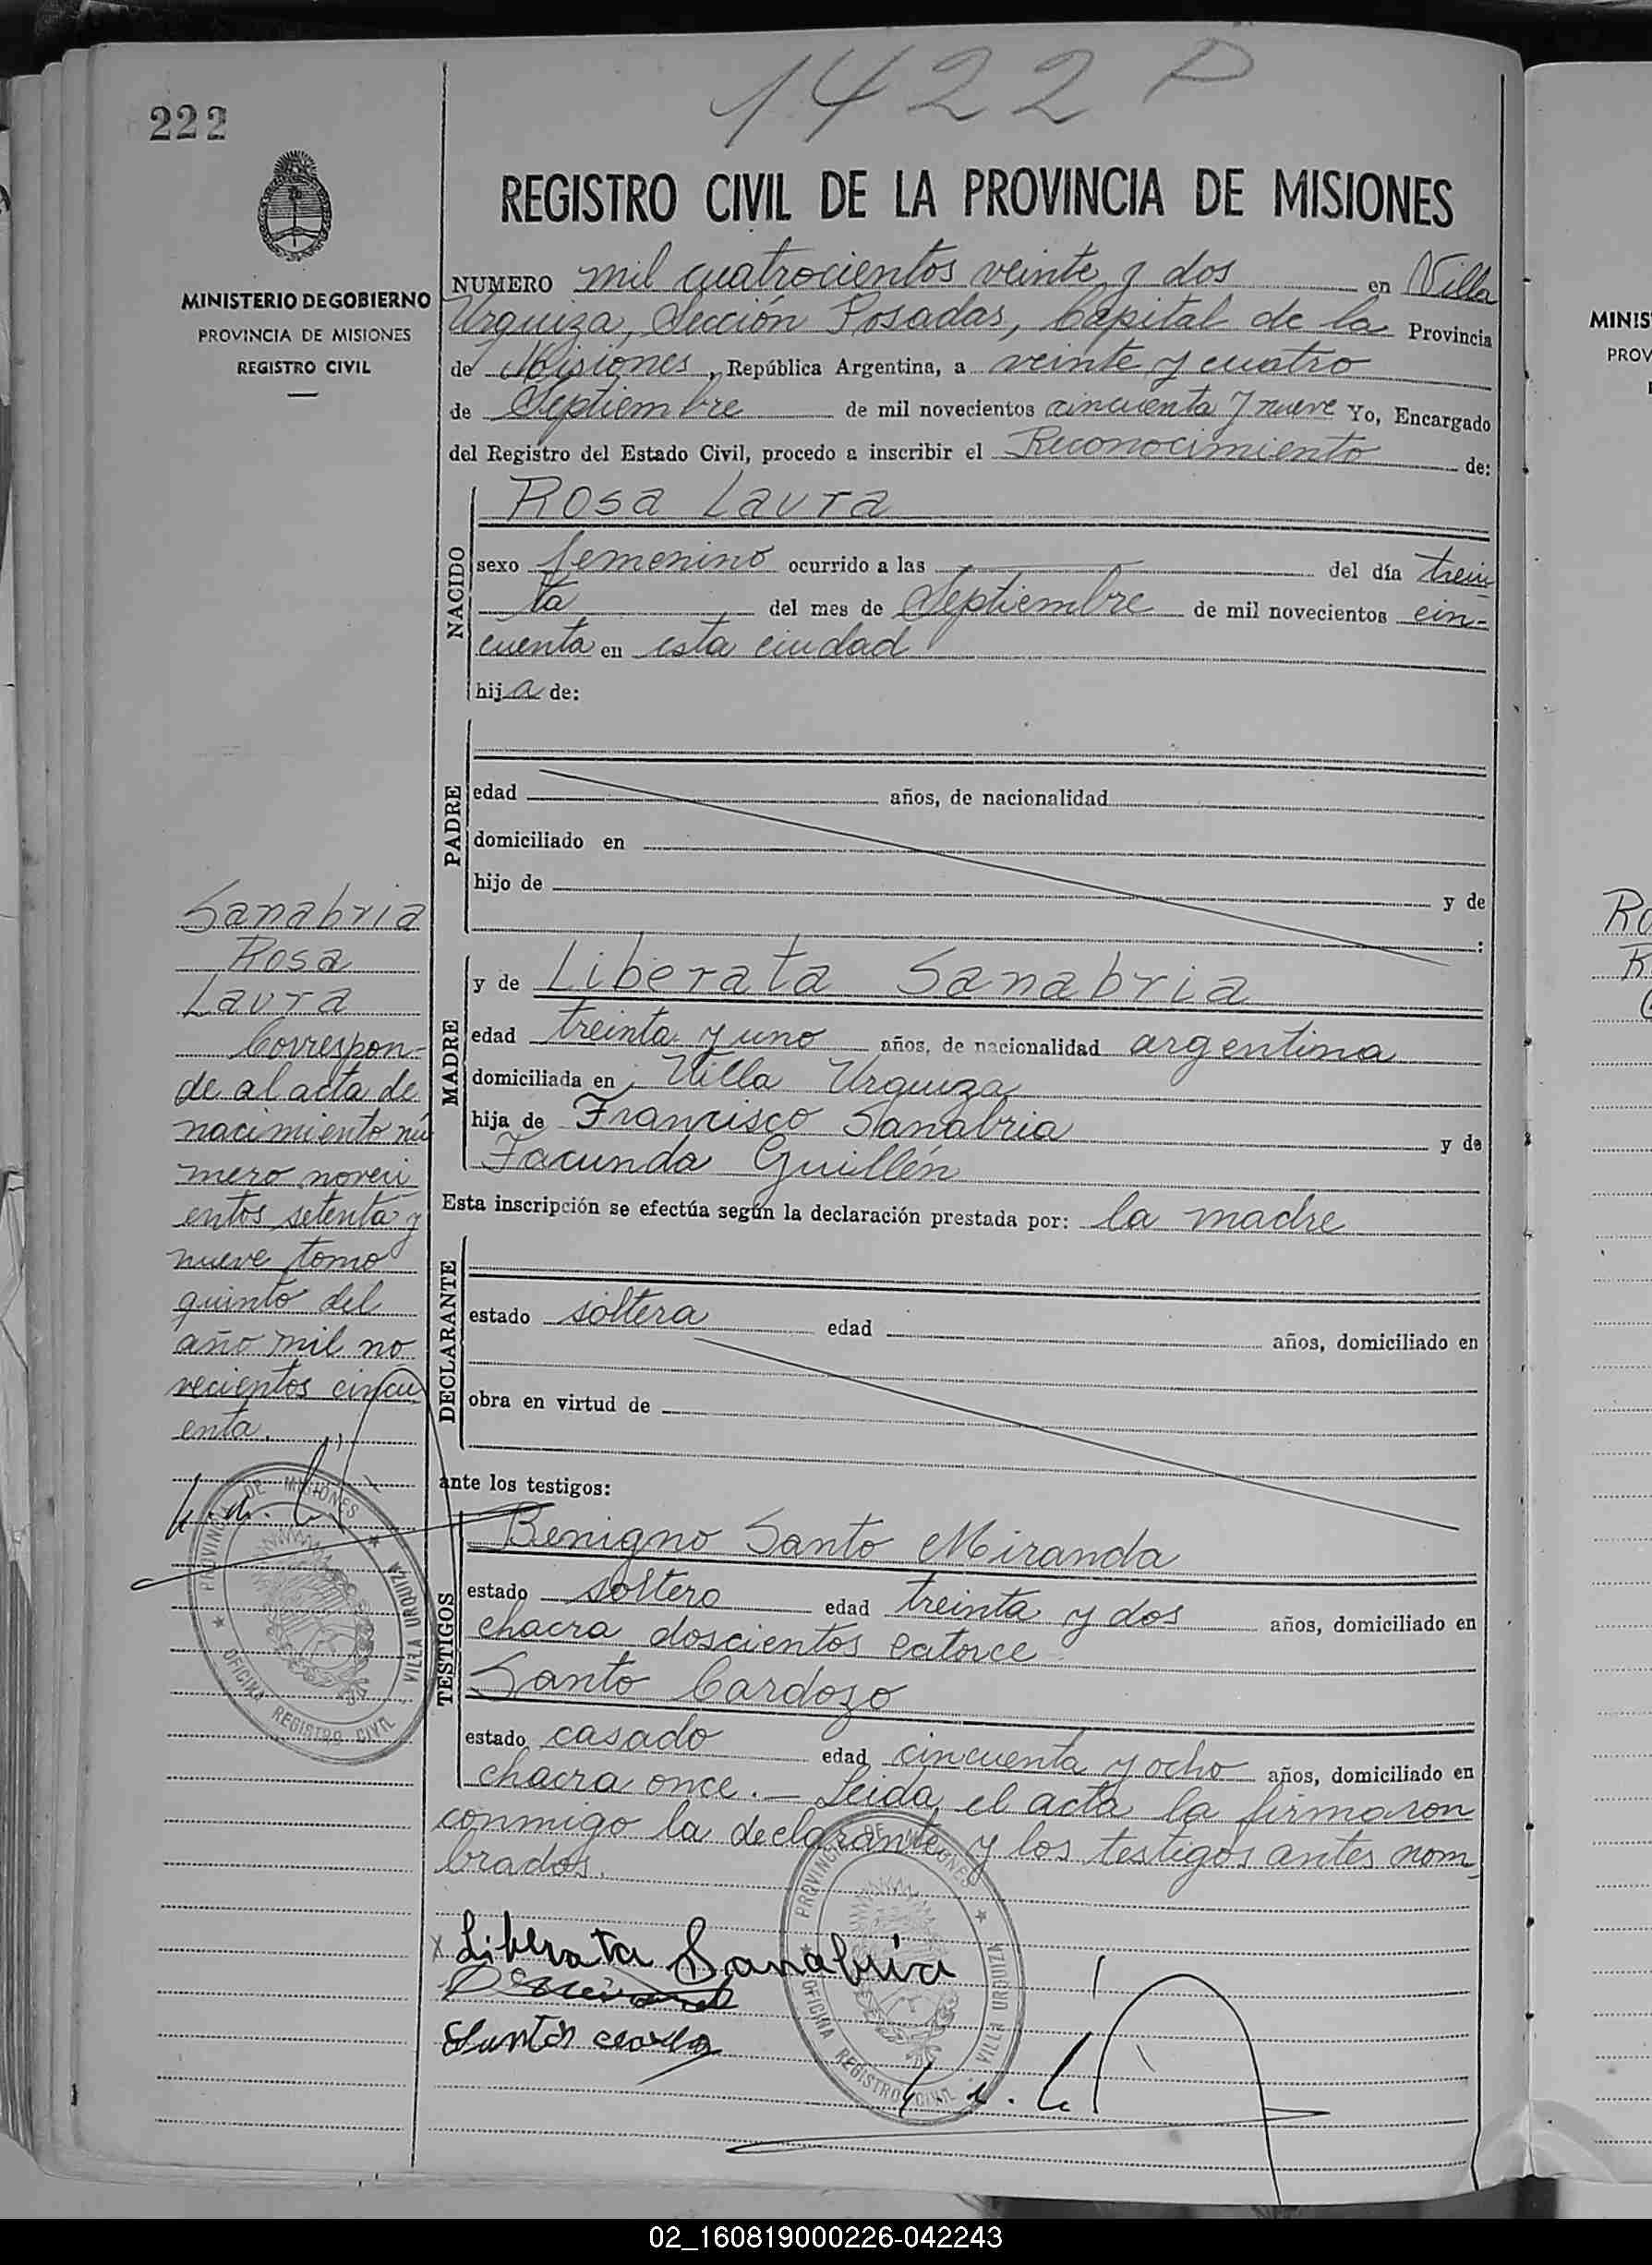 1422 P
222
REGISTRO CIVIL DE LA PROVINCIA DE MISIONES
MINISTERIO DE GOBIERNO
PROVINCIA DE MISIONES
REGISTRO CIVIL
NUMERO mil cuatrocientos veinte y dos en Villa
Urquiza, Sección Posadas, Capital de la Provincia
de Misiones, República Argentina, a veinte y cuatro
de Septiembre de mil novecientos cincuenta y nueve Yo, Encargado
del Registro del Estado Civil, procedo a inscribir el Reconocimiento de:
NACIDO
Rosa Laura
sexo femenino ocurrido a las del día trein
ta del mes de Septiembre de mil novecientos cin-
cuenta en esta ciudad
hija de:
PADRE
edad años, de nacionalidad
domiciliado en
hijo de y de
:
MADRE
y de Liberata Sanabria
edad treinta y uno años, de nacionalidad argentina
domiciliada en Villa Urquiza
hija de Francisco Sanabria y de
Facunda Guillén
Esta inscripción se efectúa según la declaración prestada por: la madre
DECLARANTE
estado soltera edad años, domiciliado en
obra en virtud de
ante los testigos:
TESTIGOS
Benigno Santo Miranda
estado soltero edad treinta y dos años, domiciliado en
chacra doscientos catorce
Santo Cardozo
estado casado edad cincuenta y ocho años, domiciliado en
chacra once.— Leida el acta la firmaron
conmigo la declarante y los testigos antes nom
brados.
Liberata Sanabria
Sanabria
Rosa
Laura
Correspon-
de al acta de
nacimiento nú
mero noveci
entos setenta y
nueve tomo
quinto del
año mil no
vecientos cincu
enta.
PROVINCIA DE MISIONES
VILLA URQUIZA
OFICINA REGISTRO CIVIL
PROVINCIA DE MISIONES
VILLA URQUIZA
OFICINA REGISTRO CIVIL
MINIS
PROV
Ro
R
02_160819000226-042243